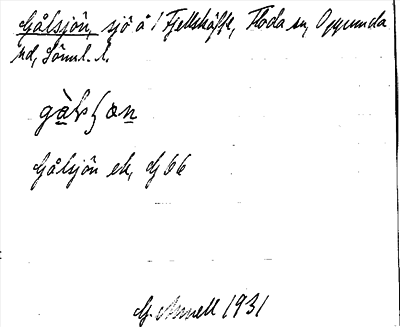 Gålsjön, sjö å 1 Fjellskäfte, Floda sn, Oppunda
hd, Söml. l.
Gålsjön ek, G 66
G. Annell 1931